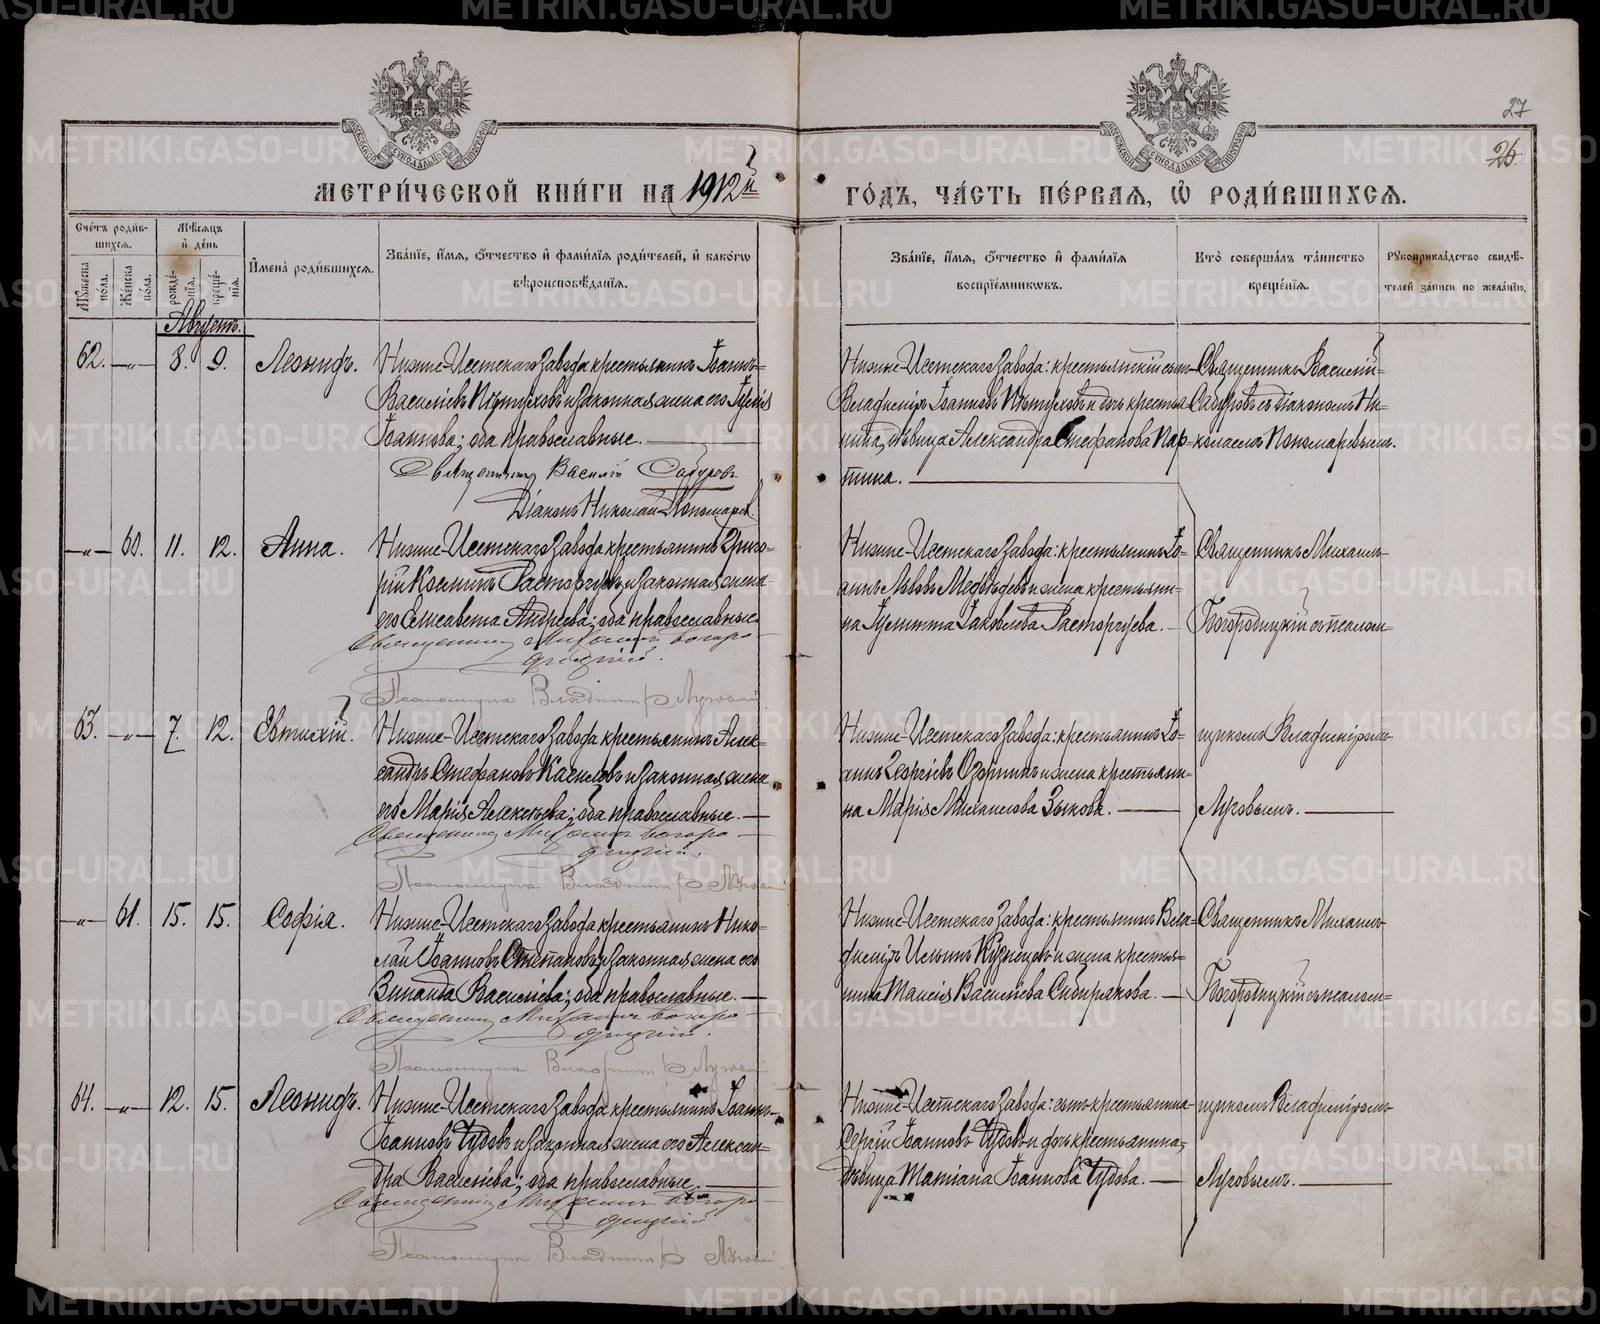 27
26
МЕТРИ́ЧЕСКОЙ КНИ́ГИ НА 1912й ГО́ДЪ, ЧА́СТЬ ПЕ́РВАЯ, Ѡ҆ РОДИ́ВШИХСЯ.
Сче́тъ роди́в-
шихся.
Мѣ́сяцъ
и҆ де́нь
Мꙋ́жеска по́ла.
Же́нска по́ла.
рожде́-нїѧ.
креще́-нїѧ.
И҆мена̀ роди́вшихся.
Зва́нїе, и҆́мя, ѻ҆́тчество и҆ фами́лїя роди́телей, и҆ како́гѡ
вѣроисповѣ́данїя.
Зва́нїе, и҆́мя, ѻ҆́тчество и҆ фами́лїя
воспрїе́мникѡвъ.
Кто̀ соверша́лъ та́инство
креще́нїя.
Рꙋкоприкла́дство свидѣ́-
телей за́писи по жела́нїю.
Августъ.
62. —„— 8. 9. Леонидъ.
Нижне-Исетскаго завода крестьянинъ Іоаннъ
Василіевъ Пѣтуховъ и законная жена его
Іоаннова; оба православные.
Священникъ Василій Сабуровъ
Діаконъ Николай Пономаревъ
Нижне-Исетскаго завода: крестьянскій сынъ
Владиміръ Іоанновъ Пѣтуховъ и дочь крестья-
нина, дѣвица Александра Стефанова Пар-
шина.
Священникъ Василій
Сабуровъ съ діакономъ Ни-
колаемъ Пономаревымъ.
—„— 60. 11. 12. Анна.
Нижне-Исетскаго завода крестьянинъ Григо-
рій Косминъ Расторгуевъ и законная жена
его Елисавета Андреева; оба православные.
Священникъ Михаилъ Богоро-
дицкій.
Псаломщикъ Владиміръ Луговый
Нижне-Исетскаго завода: крестьянинъ Іо-
аннъ Львовъ Медвѣдевъ и жена крестьяни-
на Іулитта Іаковлева Расторгуева.
Священникъ Михаилъ
Богородицкій съ псалом-
63. —„— 7. 12. Евтихій.
Нижне-Исетскаго завода крестьянинъ Алек-
сандръ Стефановъ Киселевъ и законная жена
его Марія Алексѣева; оба православные.
Священникъ Михаилъ Богоро-
дицкій.
Псаломщикъ Владиміръ Луговый
Нижне-Исетскаго завода: крестьянинъ Іо-
аннъ Георгіевъ Озорнинъ и жена крестьяни-
на Марія Михаилова Зыкова.
щикомъ Владиміромъ
Луговымъ.
—„— 61. 15. 15. Софія.
Нижне-Исетскаго завода крестьянинъ Нико-
лай Іоанновъ Степановъ и законная жена его
Зинаида Василіева; оба православные.
Священникъ Михаилъ Богоро-
дицкій.
Псаломщикъ Владиміръ Луговый
Нижне-Исетскаго завода: крестьянинъ Вла-
диміръ Ильинъ Кузнецовъ и жена крестья-
нина Таисія Василіева Сибирякова.
Священникъ Михаилъ
Богородицкій съ псалом-
64. —„— 12. 15. Леонидъ.
Нижне-Исетскаго завода крестьянинъ Іоаннъ
Іоанновъ Чудовъ и законная жена его Алексан-
дра Василіева; оба православные.
Священникъ Михаилъ Богоро-
дицкій
Псаломщикъ Владиміръ Луговый
Нижне-Исетскаго завода: сынъ крестьянина
Сергій Іоанновъ Чудовъ и дочь крестьянина,
дѣвица Татіана Іоаннова Чудова.
щикомъ Владиміромъ
Луговымъ.
METRIKI.GASO-URAL.RU